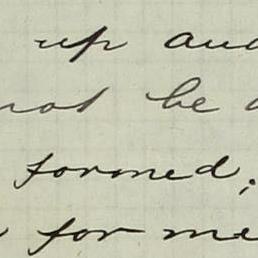 up and
not be
formed;
for me